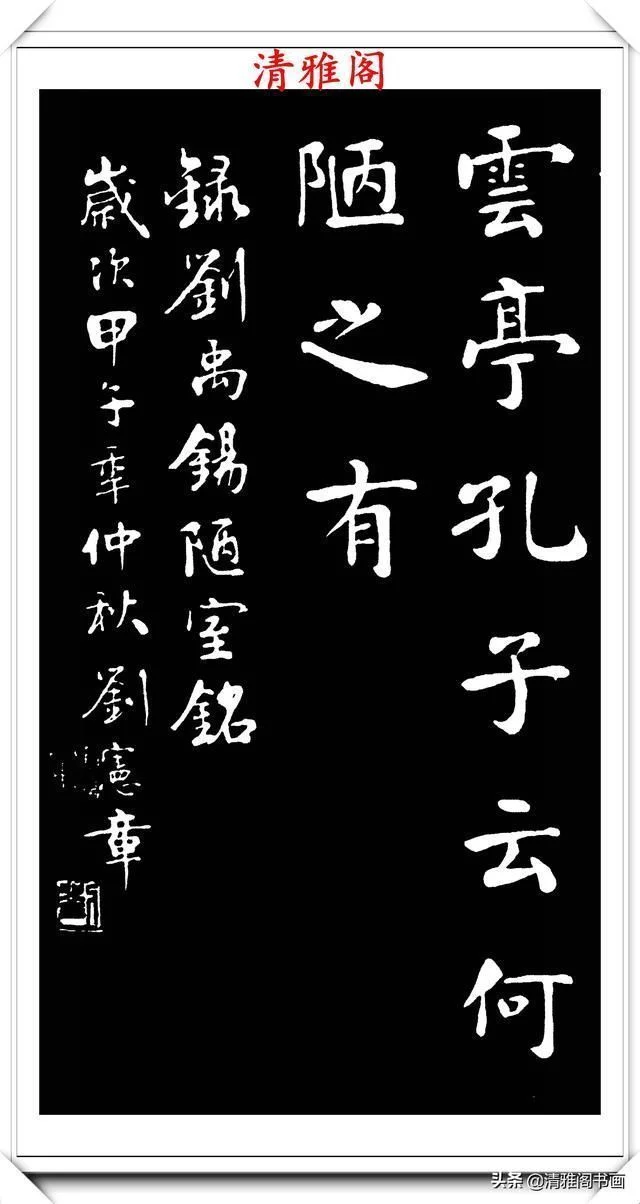 清雅阁
雲亭孔子云何
陋之有
録劉禹錫陋室銘
歲次甲午年仲秋劉憲章
头条@清雅阁书画